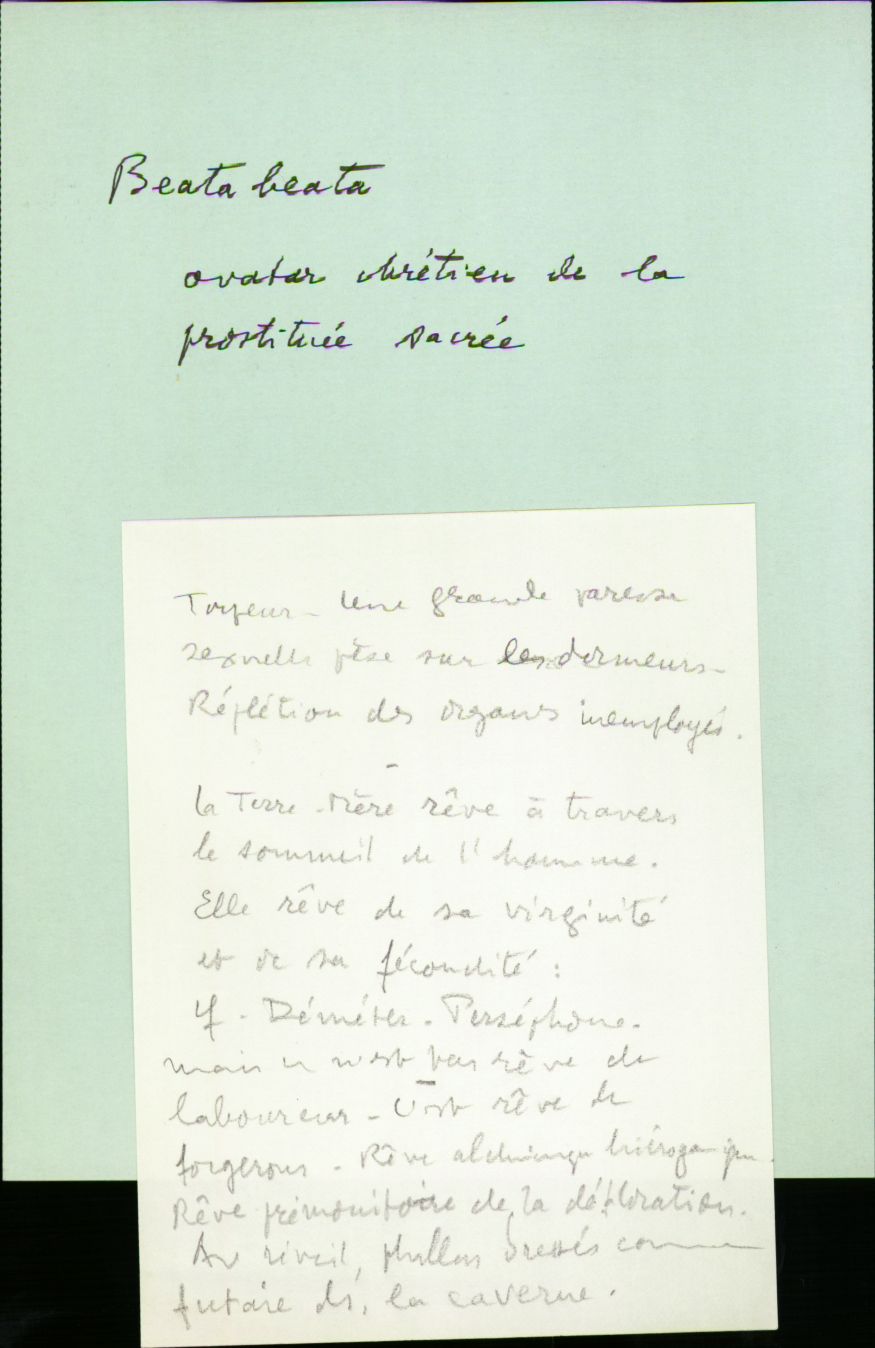 Beata beata
avatar chrétien de la
prostituée sacrée
Torpeur - Une grande paresse
sexuelle pèse sur les dormeurs -
Réplétion des organes inemployés.
-
la Terre-Mère rêve à travers
le sommeil de l'homme.
Elle rêve de sa virginité
et de sa fécondité :
Cf. Déméter - Perséphone.
mais ce n'est pas rêve de
laboureur - C'est rêve de
forgerons - Rêve alchimique hiérogamique.
Rêve prémonitoire de la défloration.
Au réveil, phallus dressés comme
futaie ds. la caverne.